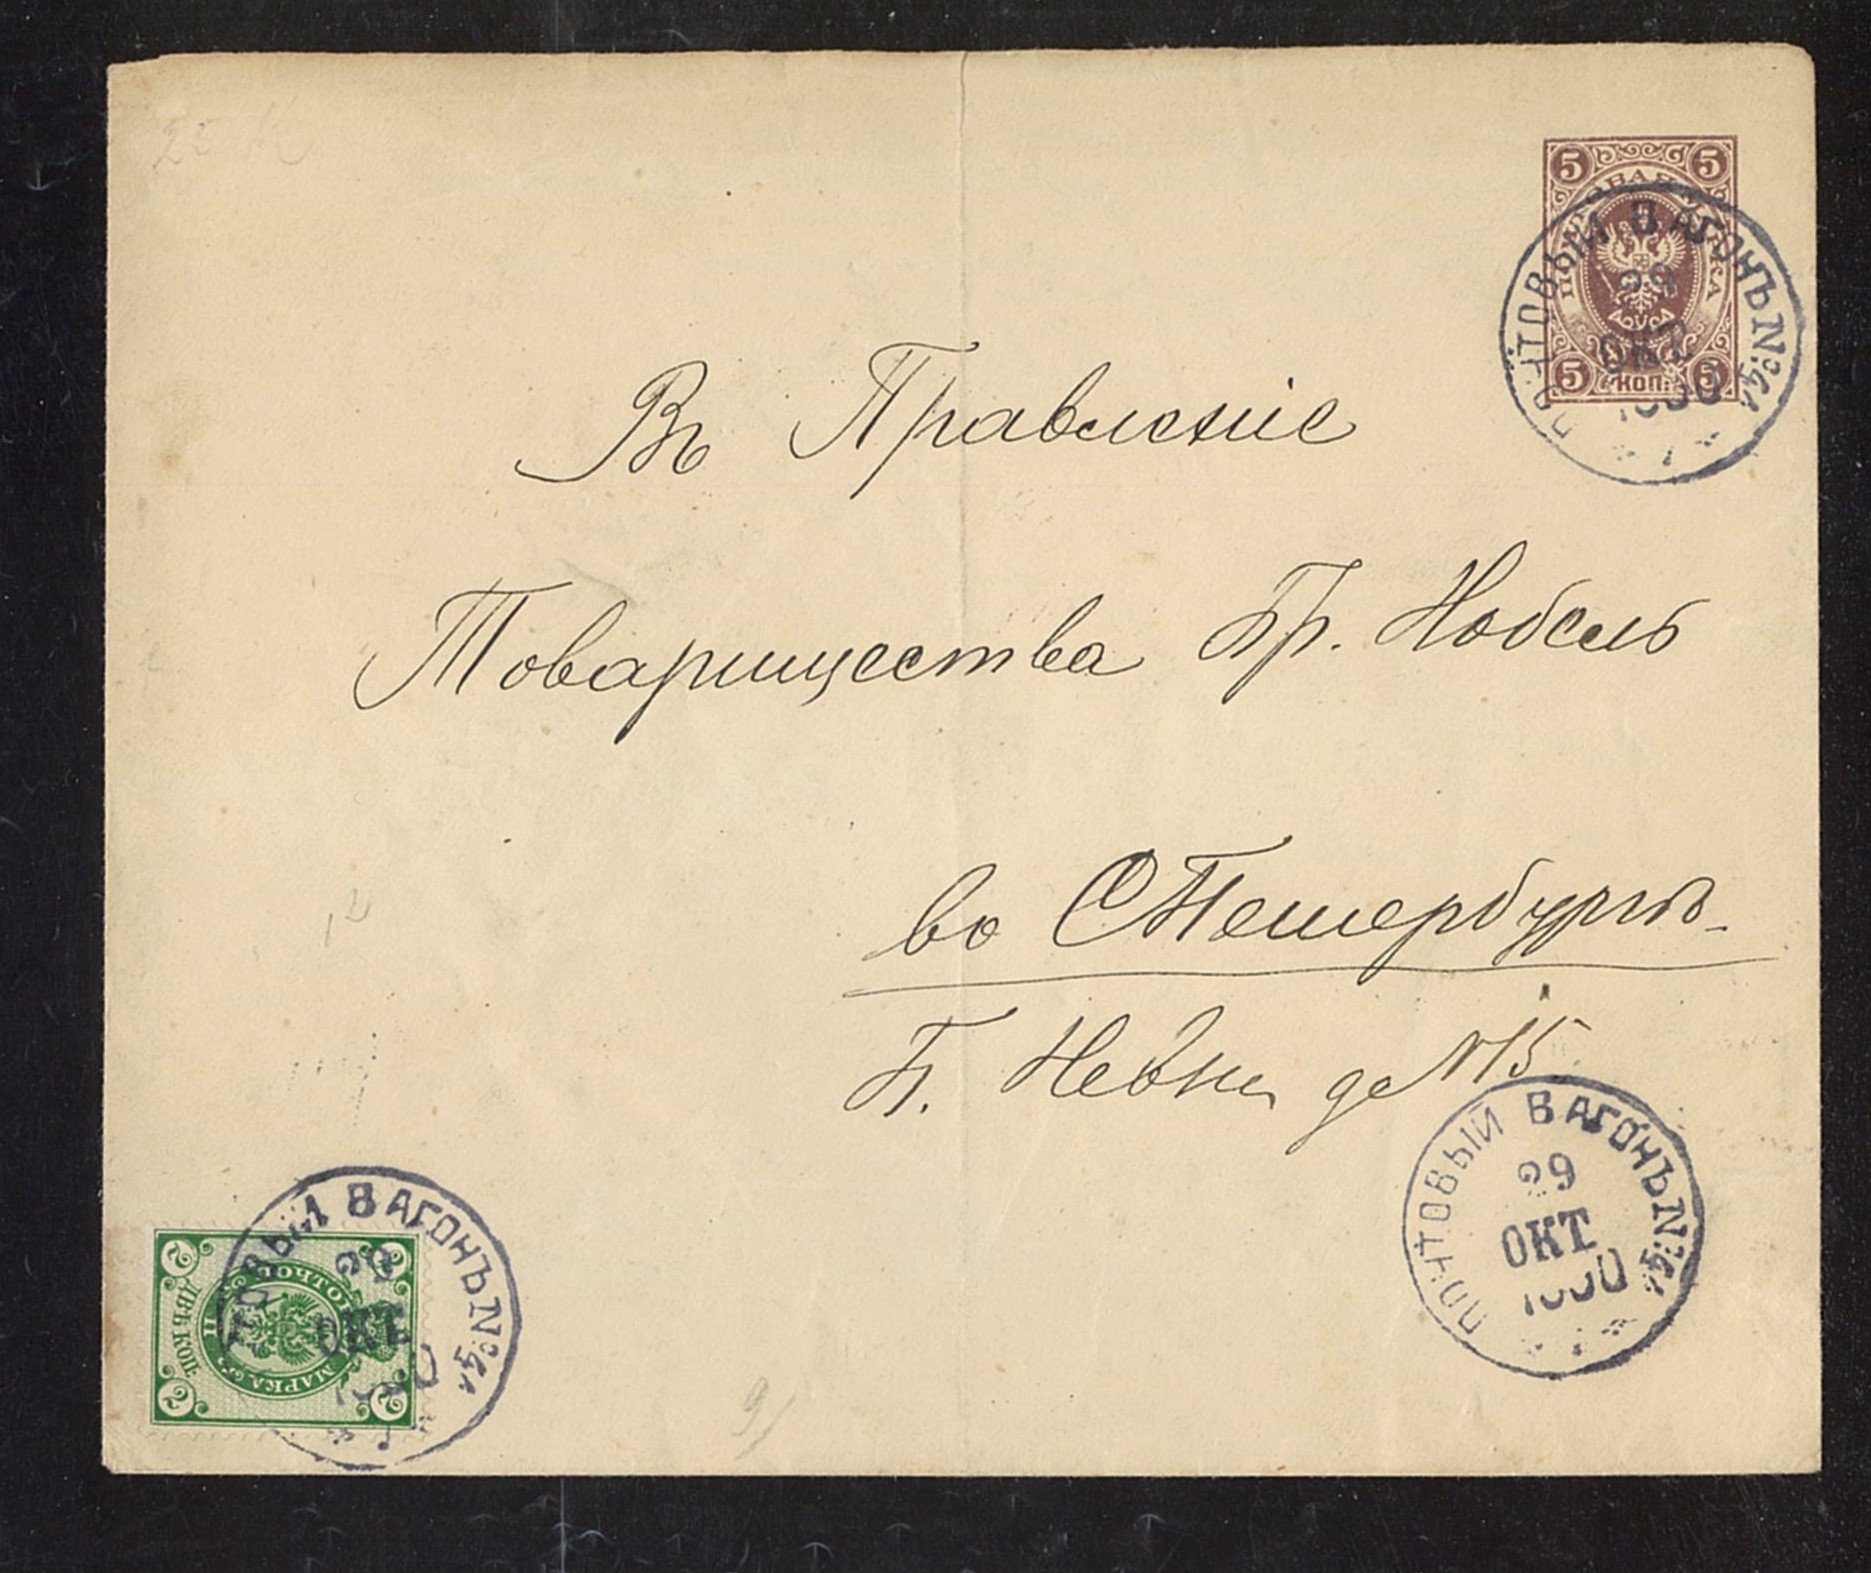 25 К
5 5
ПОЧТОВАЯ МАРКА
5 КОП. 5
ПОЧТОВЫЙ ВАГОНЪ №
29
ОКТ
Въ Правленіе
Товарищества Бр. Нобель
во СПетербургѣ
Б. Невки д № 15
12
ПОЧТОВЫЙ ВАГОНЪ №
29
ОКТ
ПОЧТОВЫЙ ВАГОНЪ №
29
ОКТ
2 2
ПОЧТОВАЯ МАРКА
ДВѢ КОП.
2 2